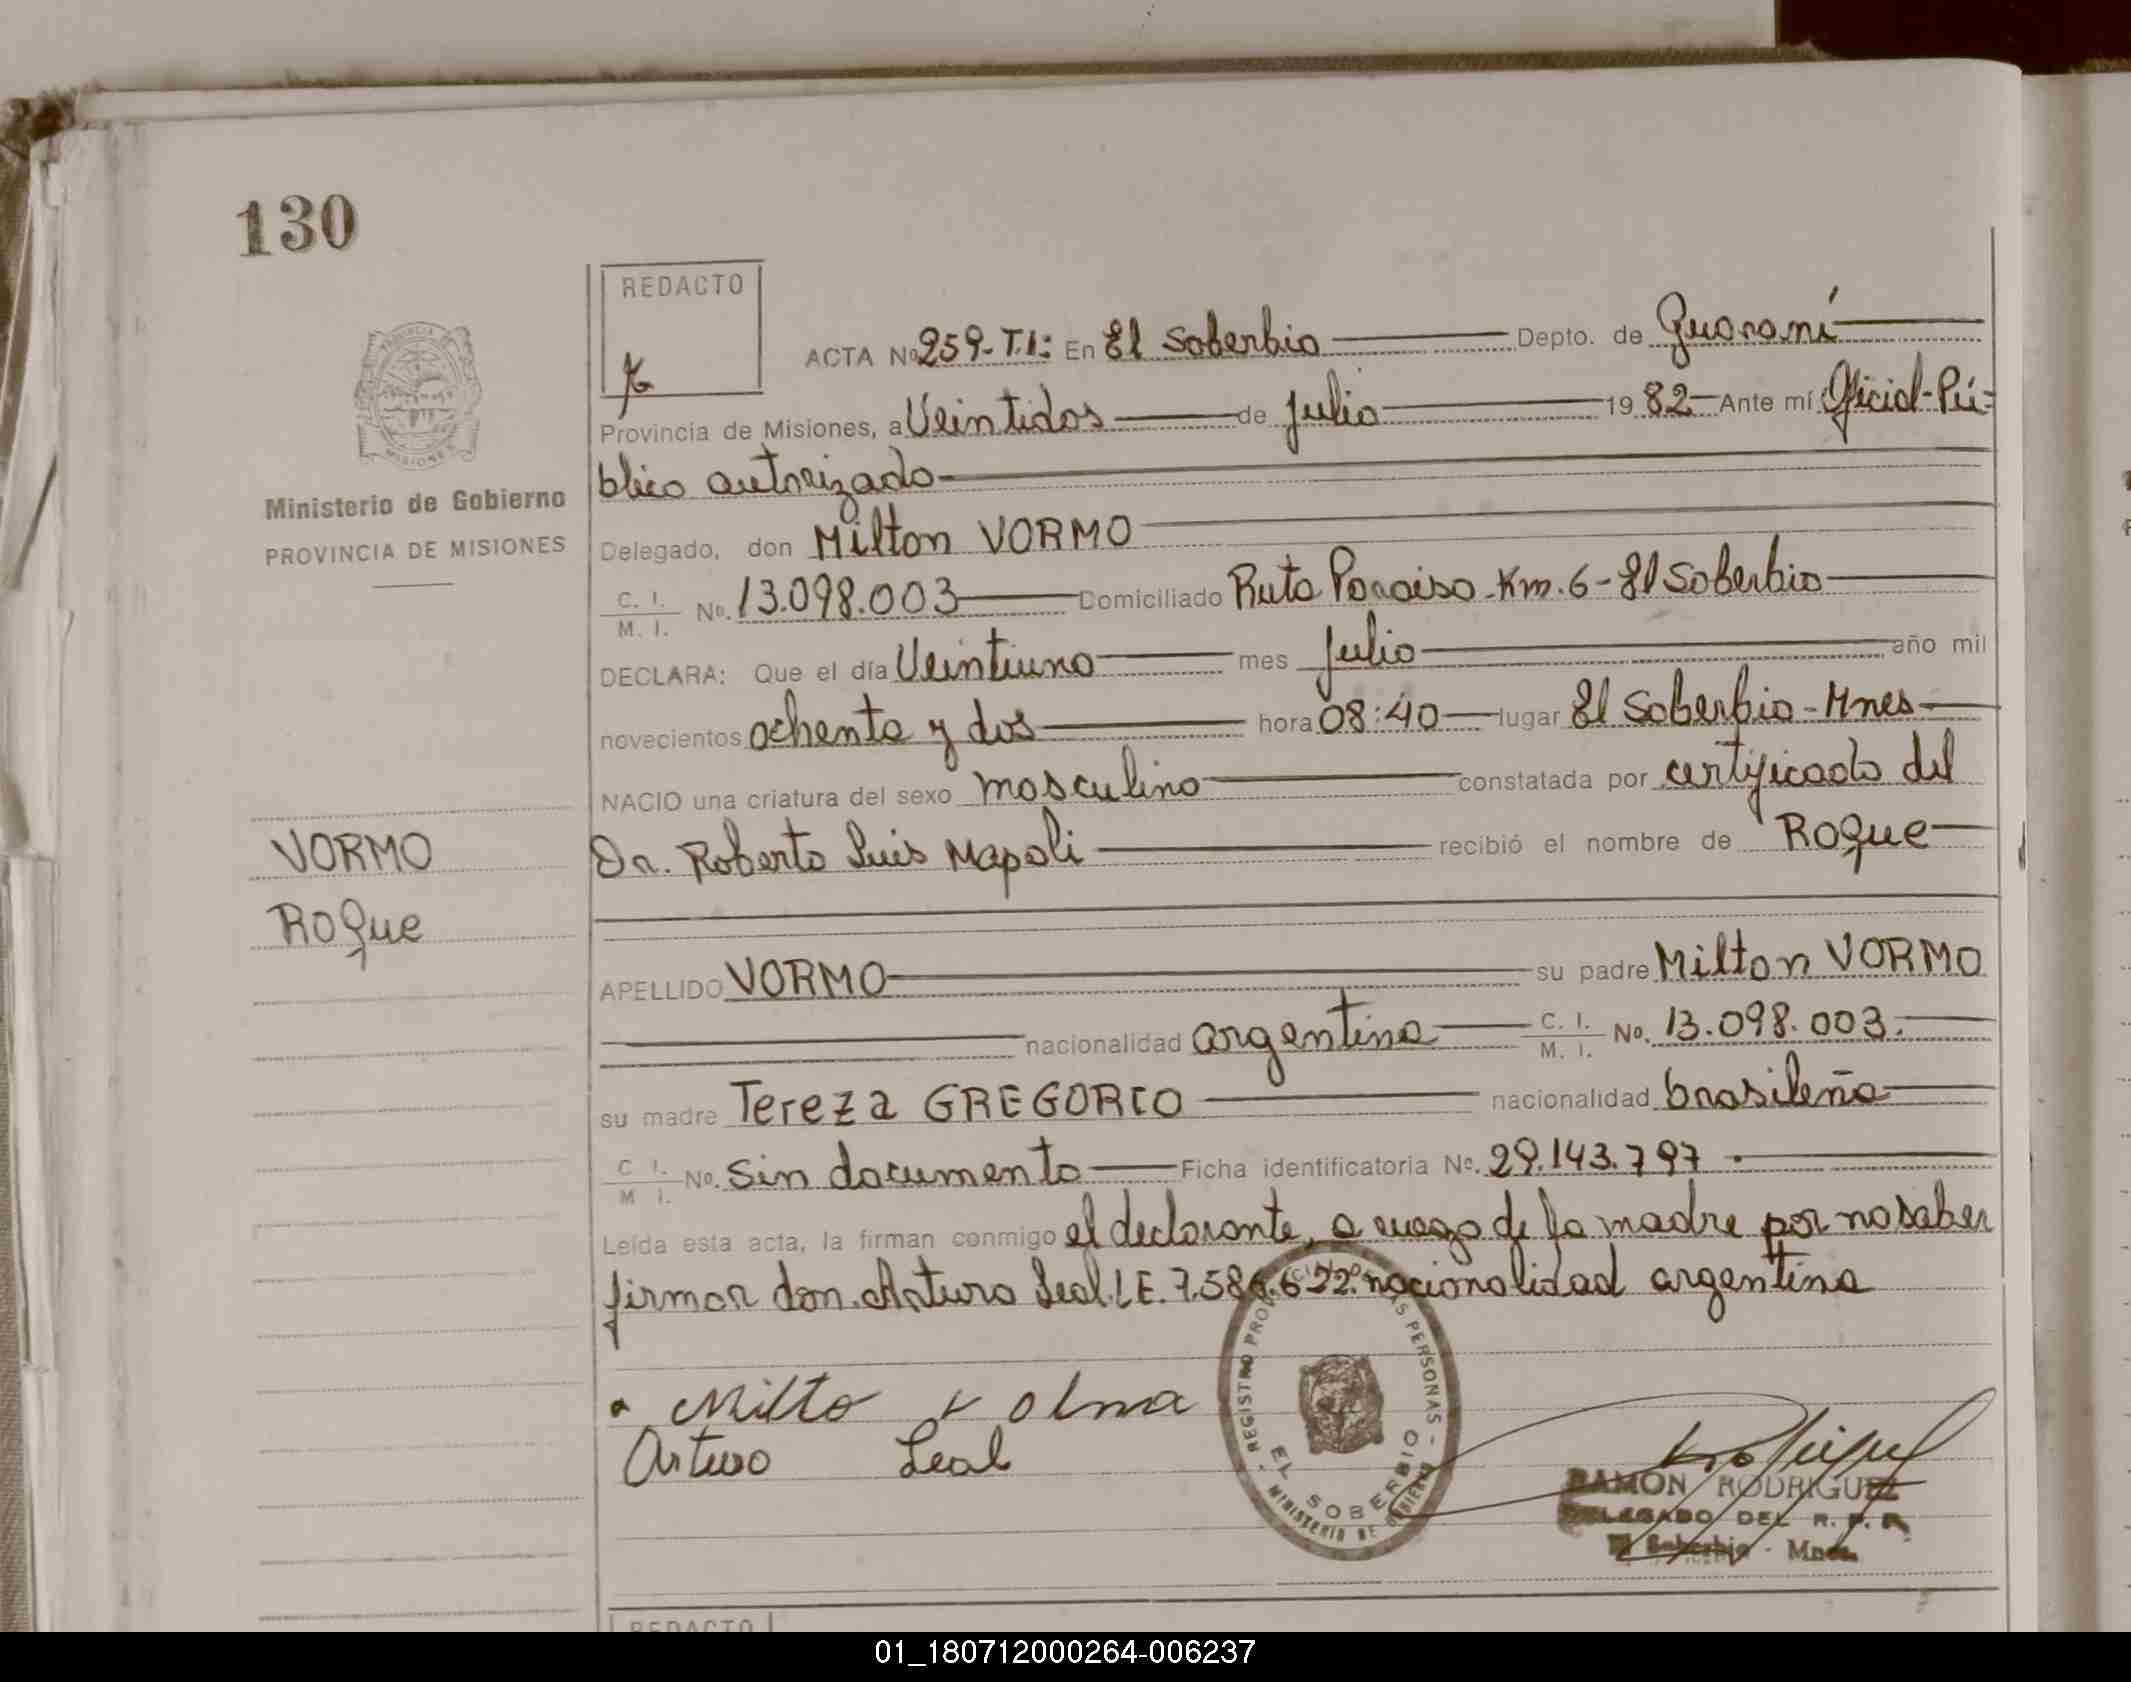 130
REDACTO
ACTA Nº 259-T.I: En El Soberbio Depto. de Guaraní
Provincia de Misiones, a Veintidos de julio 1982 Ante mí Oficial-Pú-
blico autorizado
Ministerio de Gobierno
PROVINCIA DE MISIONES
Delegado, don Milton VORMO
C. I.
M. I. Nº. 13.098.003 Domiciliado Ruta Paraiso-Km.6-El Soberbio
DECLARA: Que el día Veintiuno mes julio año mil
novecientos ochenta y dos hora 08:40 lugar El Soberbio-Mnes
NACIO una criatura del sexo masculino constatada por certificado del
Dr. Roberto Luis Napoli recibió el nombre de Roque
VORMO
Roque
APELLIDO VORMO su padre Milton VORMO
nacionalidad argentina C. I.
M. I. Nº. 13.098.003.
su madre Tereza GREGORIO nacionalidad brasileña
C. I.
M. I. Nº. Sin documento Ficha identificatoria Nº. 29.143.797.
Leída esta acta, la firman conmigo el declarante, a ruego de la madre por no saber
firmar don Arturo Leal. L E. 7.586.622. nacionalidad argentina
Milto Volma
Arturo Leal
REGISTRO PERSONAS
EL SOBERBIO
MINISTERIO DE GOBIERNO
RAMON RODRIGUEZ
DELEGADO DEL R. P. P.
El Soberbio - Mnes.
REDACTO
01_180712000264-006237